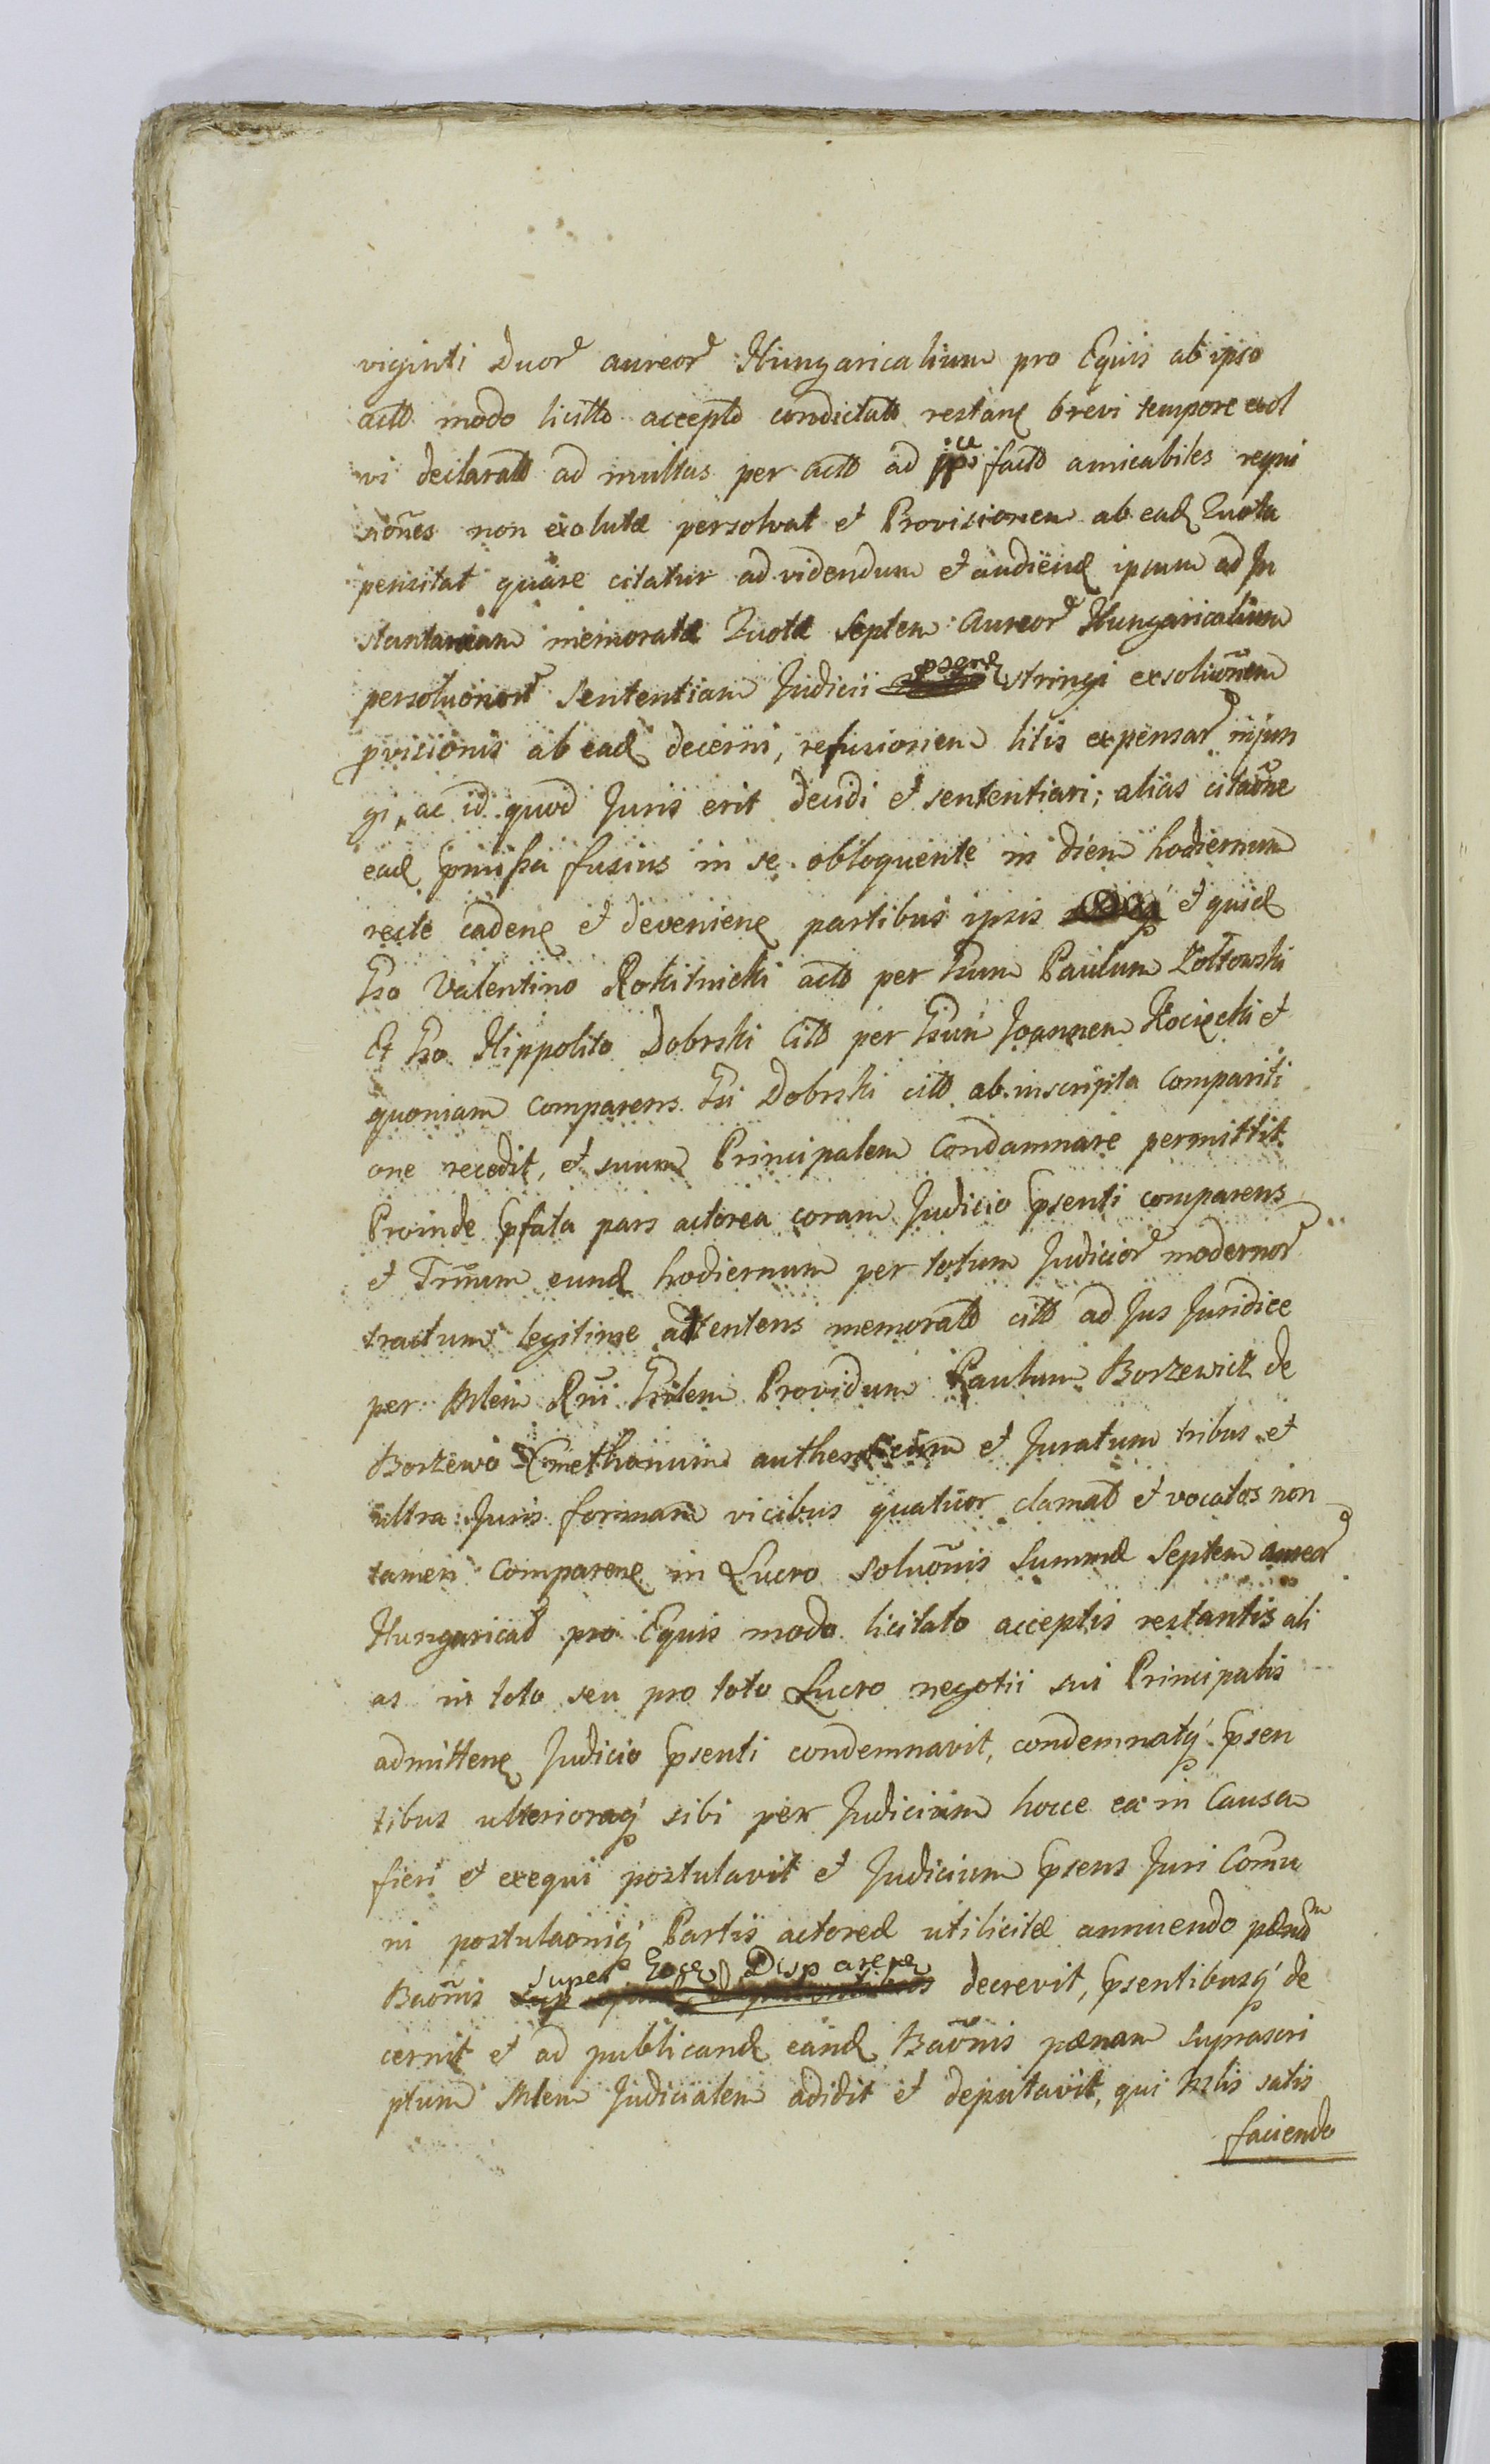 viginti Duor aureor Hungaricalium pro Equis ab ipso
actto modo licitto accepto condictatto restan brevi tempore exol
vi declaratto ad multas per actto ad facto amicabiles requi
siones non exolutæ persolvat et Provisionem ab ead Quota
pensitat quare citatur ad videndum et audiend ipsum ad In
stantaneam memoratæ Quotæ Septem Aureor Hungaricalium
persoluonem Sententiam Judicii stringi exsoluonem
pvisionis ab ead decerni, refusionem litis expensar injun
gi, ac id quod Juris erit decidi et sententiari; alias citaone
ead pmissa fusius in se obloquente in diem hodiernum
recte caden et devenien partibus ipsis et quid
Gso Valentino Rokitnicki actto per Gsum Paulum Zoltowski
Et Gso Hippolito Dobrski Citto per Gsum Joannem Kociecki et
quoniam Comparens Gsi Dobrski citto ab inscripta Compariti
one recedit, et suum Principalem Condamnare permittit
Proinde pfata pars actorea coram Judicio psenti comparens
et Trnum eund hodiernum per totum Judicior modernor
tractum legitime attentens memoratto citto ad Jus Juridice
per Mlem Rni Gnlem Providum Paulum Borzewicz de
Borzewo Cmethonum authenticum et Juratum tribus et
ultra Juris formam vicibus quatuor clamatto et vocatos non
tamen Comparen in Lucro Soluonis Summæ Septem aureor
Hungarical pro Equis modo licitato acceptis restantis ali
as in toto seu pro toto Lucro negotii sui Principalis
admitten Judicio psenti condemnavit, condemnatq psen
tibus ulterioraq sibi per Judicium hocce ea in Causa
fieri et exequi postulavit et Judicium psens Juri Comu
ni postulaoniq Partis actoreæ utilicitæ annuendo
Baonis super decrevit, psentibusq de
cernit et ad publicand eand Baonis pænam suprascri
ptum Mlem Judicialem adidit et deputavit, qui Mlis satis
faciendo